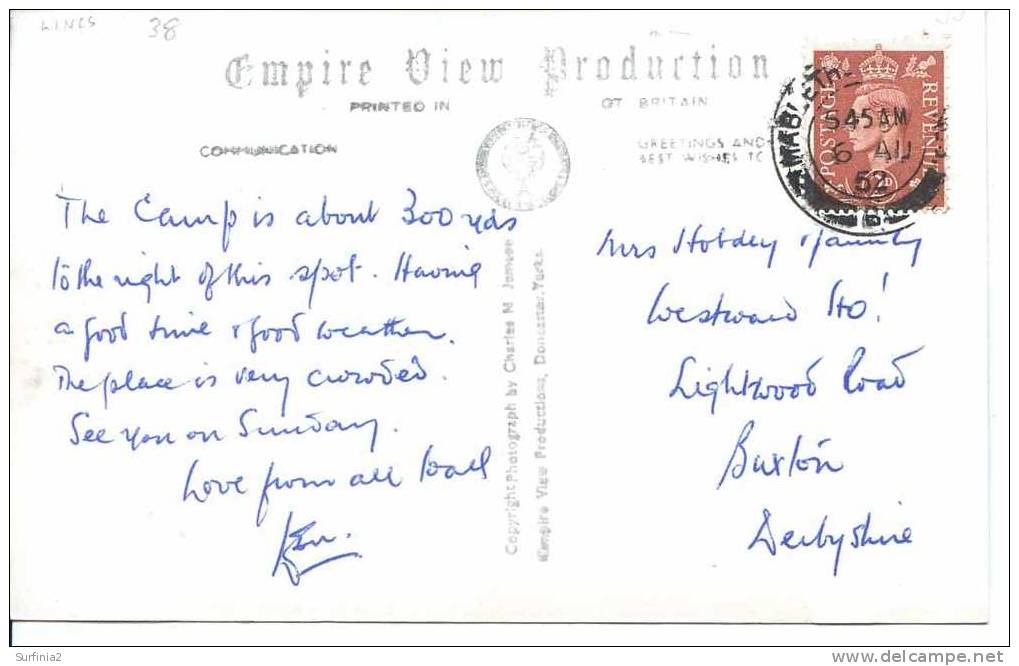 LINCS 38
Empire View Production
PRINTED IN GT BRITAIN
COMMUNICATION
GREETINGS AND
BEST WISHES TO
MABLETH
545AM
6 AU
52
POSTAGE
REVENUE
The Camp is about 300 yds
to the right of this spot. Having
a good time & good weather.
The place is very crowded.
See you on Sunday.
Love from all to all
Ken.
Copyright Photograph by Charles M
Empire View Productions, Doncaster, Yorks.
Mrs Hobdey & family
Westward Ho!
Lightwood Road
Buxton
Derbyshire
Surfinia2
www.delcampe.net